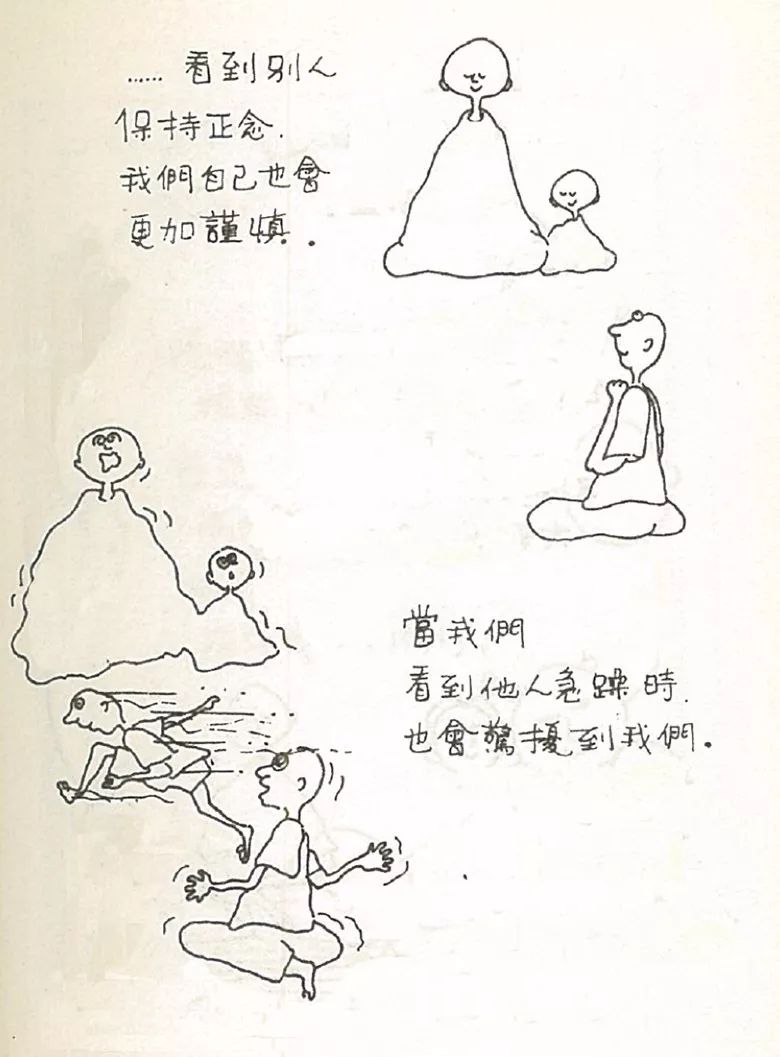 …… 看到別人
保持正念.
我們自己也會
更加謹慎.
當我們
看到他人急躁時.
也會驚擾到我們.